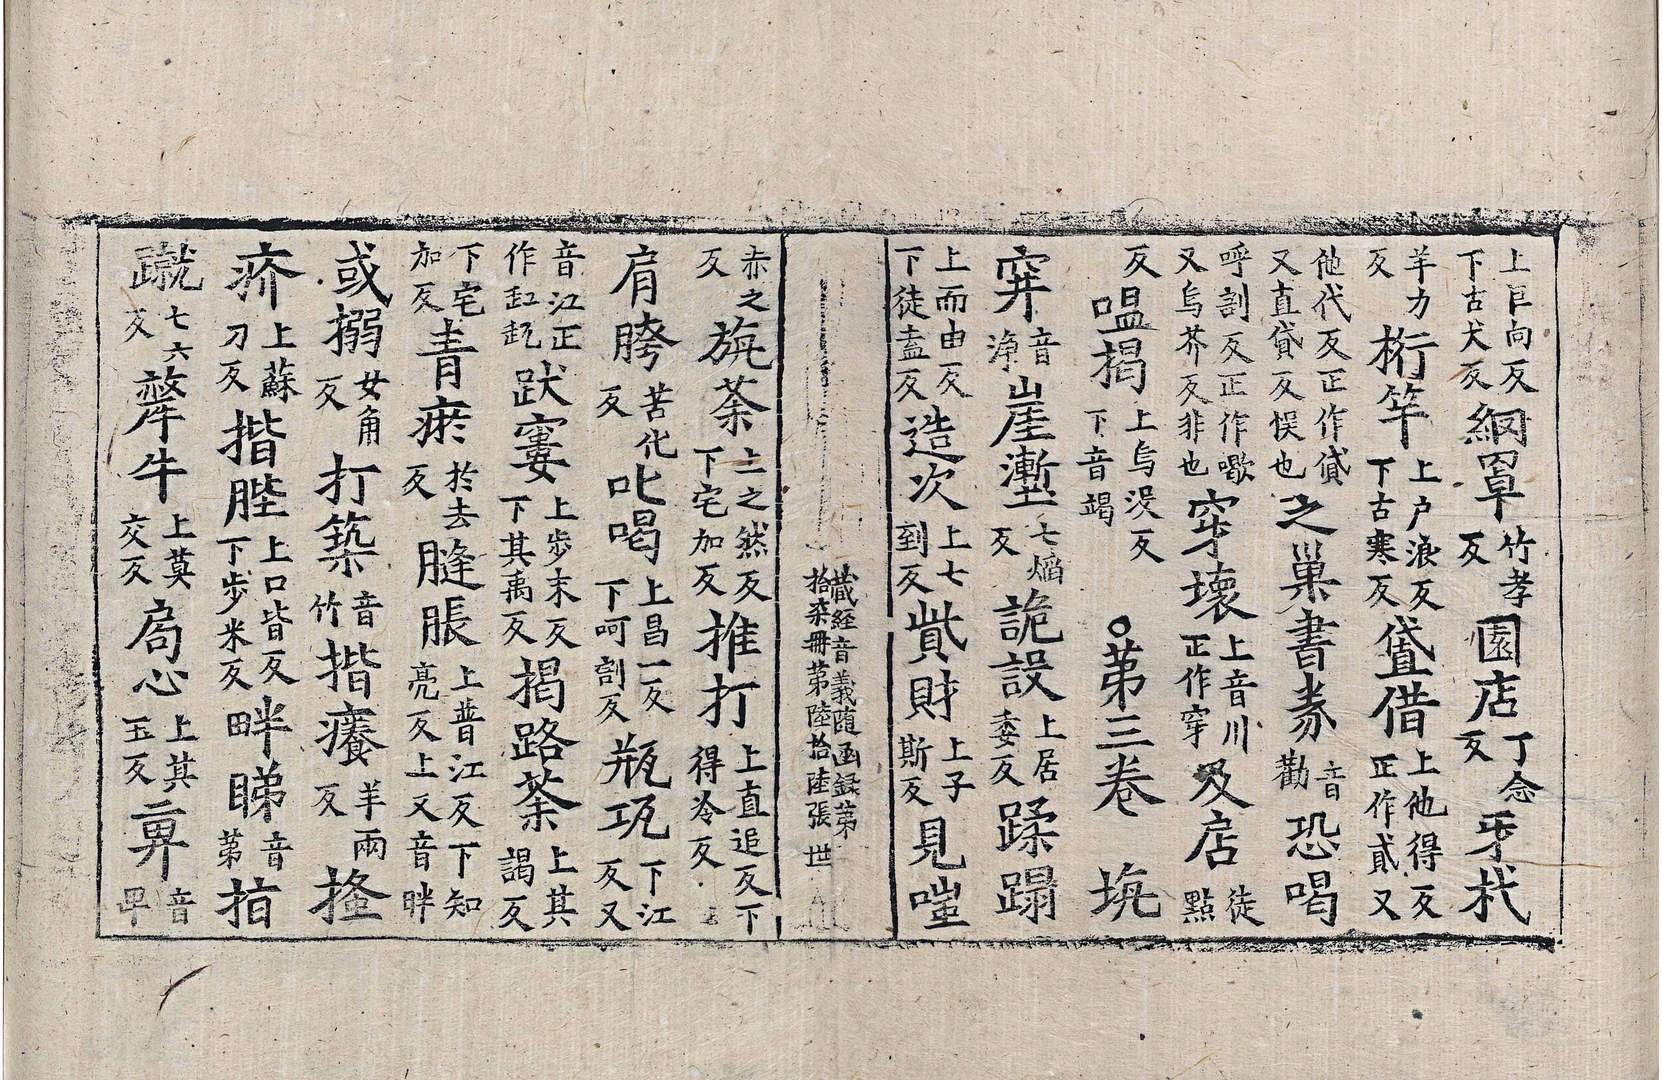 上巨向反下古犬反網罩竹孝反園店丁念反牙杙
羊力反桁竿上户浪反下古寒反貸借上他得反正作貣又
他代反正作貸又直貸反悮也之巢書券音勸恐喝
呼割反正作又烏芥反非也穿壞上音川正作穿及店徒點
反嗢揭上烏没反下音竭○第三卷埦
穽音浄崖壍七焰反詭設上居委反蹂蹋
上而由反下徒盍反造次上七到反貲財上子斯反見
藏經音義随函録第
拾柒冊第陸拾陸張 世
赤之反旃荼上之然反下宅加反推打上直追反下得冷反
肩胯苦化反叱喝上昌一反下呵割反瓶瓨下江反又
音江正作缸瓨跋窶上步末反下其禹反揭路荼上其謁反
下宅加反青瘀於去反膖脹上普江反下知亮反上又音胖
或搦女角反打築音竹揩癢羊兩反搔
疥上蘇刀反揩䏶上口皆反下步米反畔睇音第指
蹴七六反犛牛上莫交反局心上其玉反音